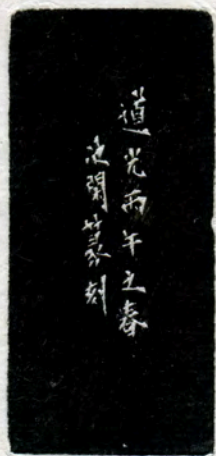 道光丙午之春
篆刻